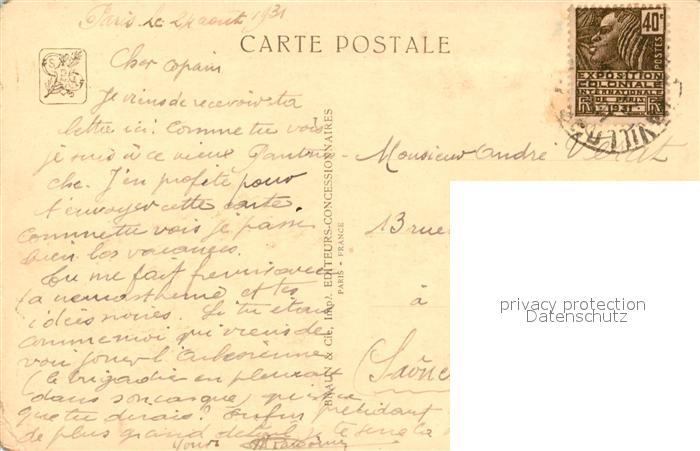 Paris le 24 août 1931
CARTE POSTALE
Cher Copain
Je viens de recevoir ta
lettre ici. Comme tu vois
je suis à ce vieux Panton-
che. J'en profite pour
t'envoyer cette carte.
Comme tu vois je passe
bien les vacances.
Tu me fait frémir avec
ta neurasthénie et tes
idées noires. Si tu étais
comme moi qui viens de
voir jouer l'Arlésienne
(le brigadier en pleurait
dans son casque) qu'est ce
que tu dirais? Enfin
de plus grand
BRAUN & Cie, Imp. EDITEURS-CONCESSIONNAIRES
PARIS - FRANCE
40c
POSTES
EXPOSITION
COLONIALE
INTERNATIONALE
DE PARIS
1931
Monsieur André
13 rue
à
(Saône
privacy protection
Datenschutz